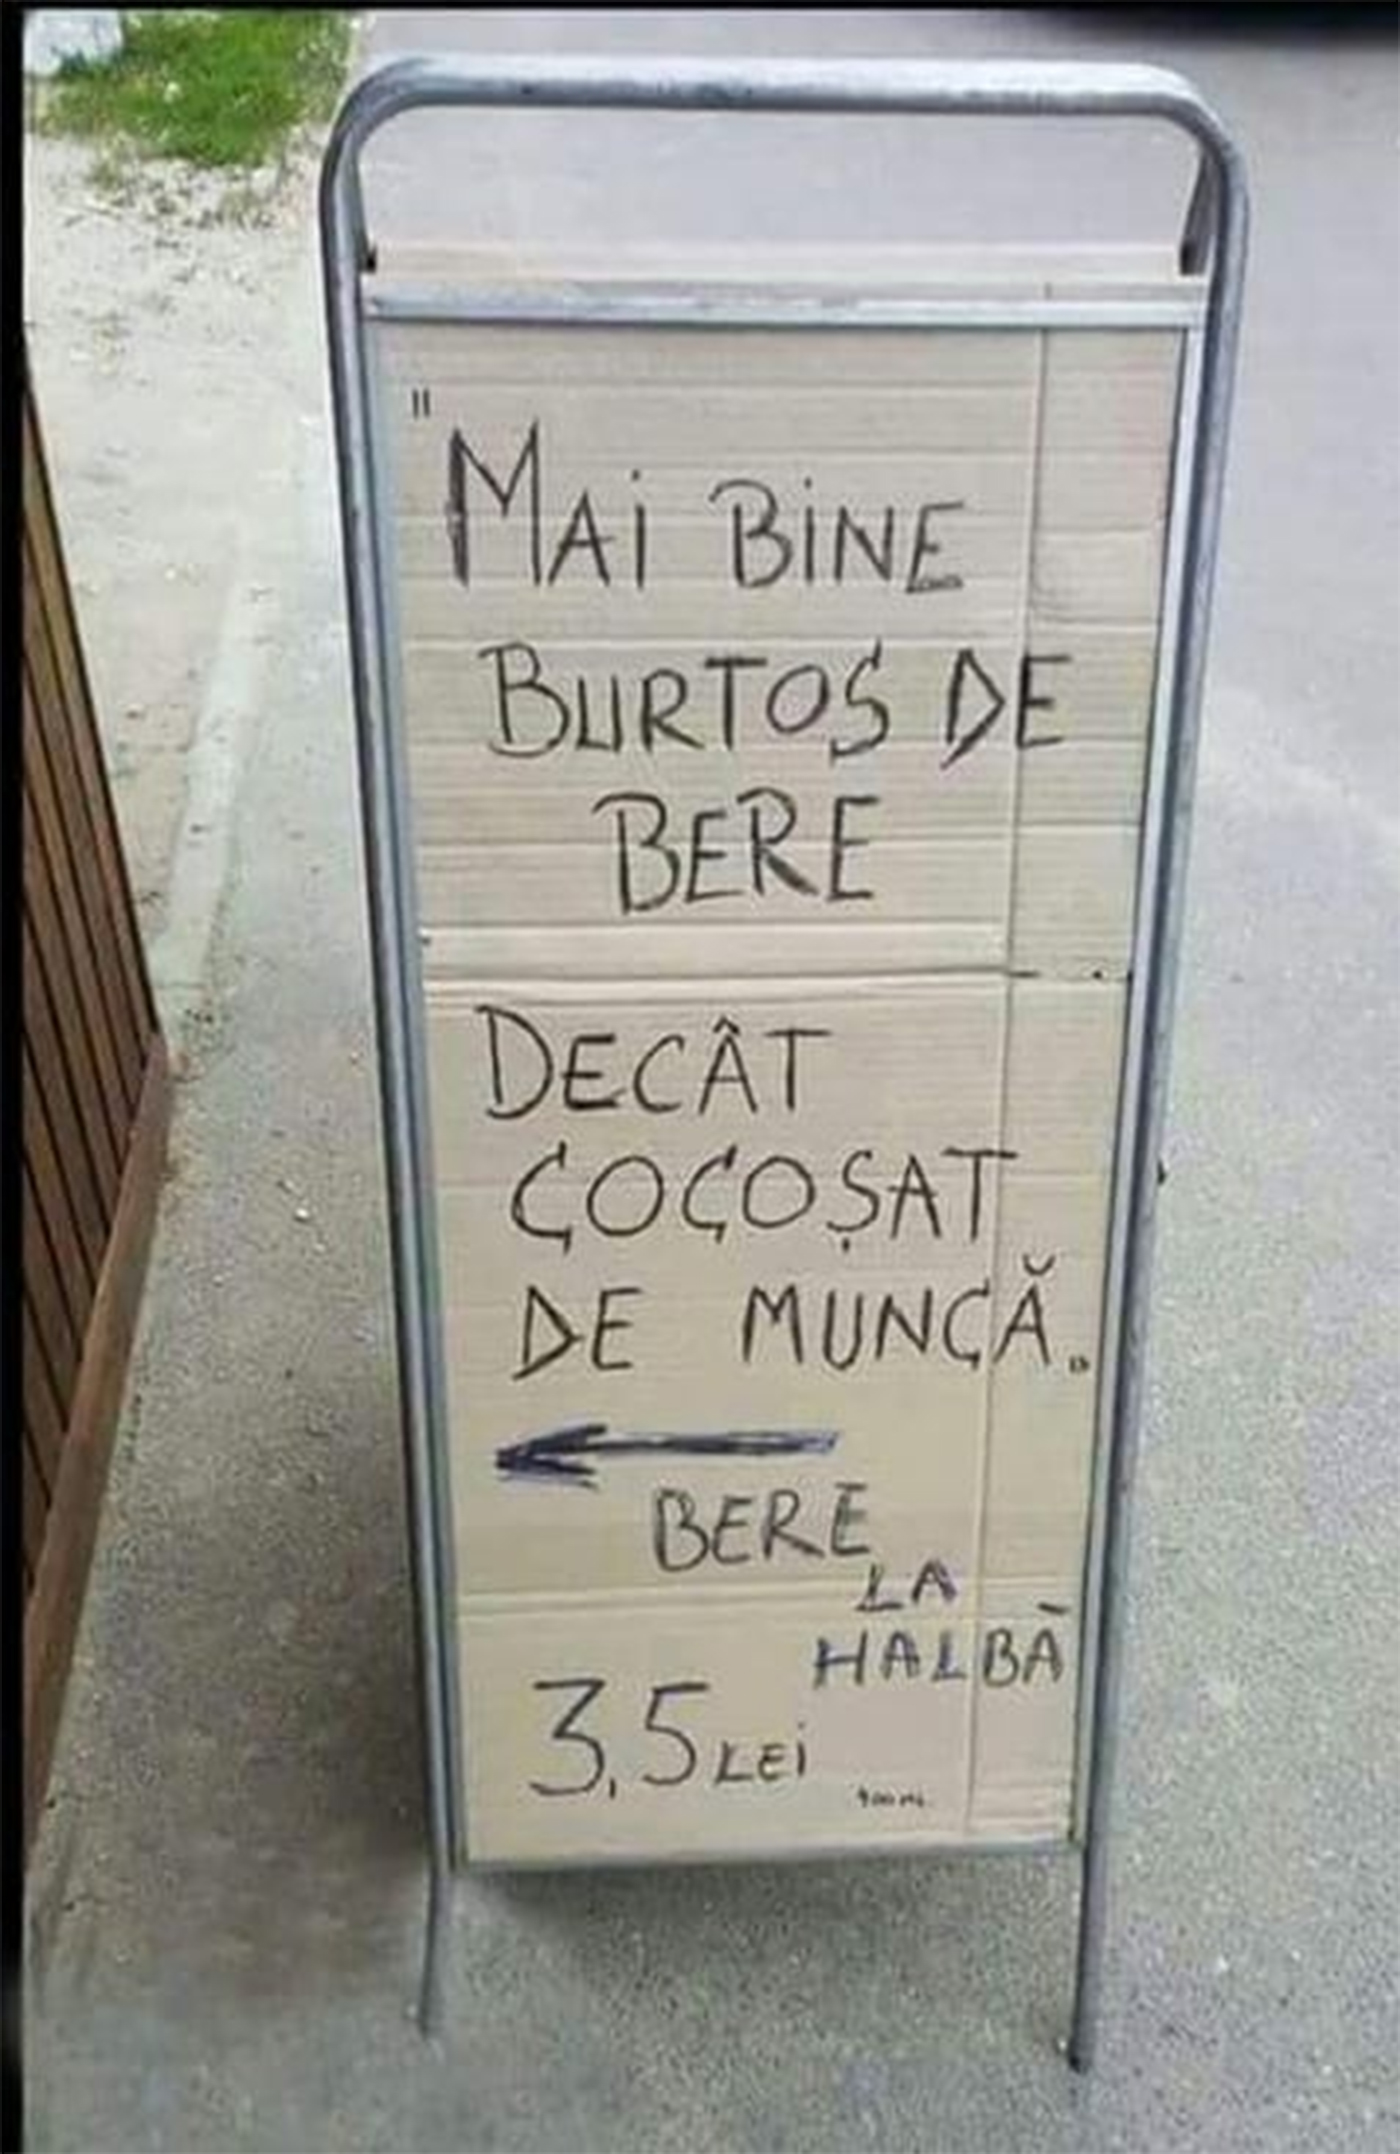 "MAI BINE
BURTOS DE
BERE
DECÂT
COCOȘAT
DE MUNCĂ."
BERE
LA
HALBĂ
3,5 LEI